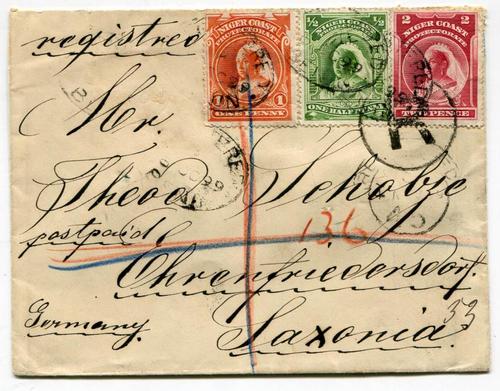 registred
NIGER COAST
PROTECTORATE
1 1
ONE PENNY
½ ½
NIGER COAST
PROTECTORATE
ONE HALFPENNY
2 2
NIGER COAST
PROTECTORATE
TWO PENCE
R
Mr.
Theod. Schobze
postpaid
136
Ehrenfriedersdorf.
Germany.
Saxonia.
33